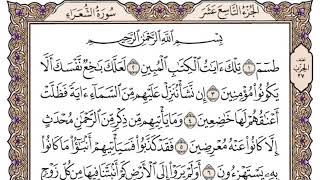 الجُزْءُ التَّاسِعَ عَشَرَ
سُورَةُ الشُّعَرَاءِ
بِسْمِ ٱللَّهِ ٱلرَّحْمَٰنِ ٱلرَّحِيمِ
طسٓمٓ ١ تِلْكَ ءَايَٰتُ ٱلْكِتَٰبِ ٱلْمُبِينِ ٢ لَعَلَّكَ بَٰخِعٌ نَّفْسَكَ أَلَّا
يَكُونُوا۟ مُؤْمِنِينَ ٣ إِن نَّشَأْ نُنَزِّلْ عَلَيْهِم مِّنَ ٱلسَّمَآءِ ءَايَةً فَظَلَّتْ
أَعْنَٰقُهُمْ لَهَا خَٰضِعِينَ ٤ وَمَا يَأْتِيهِم مِّن ذِكْرٍ مِّنَ ٱلرَّحْمَٰنِ مُحْدَثٍ
إِلَّا كَانُوا۟ عَنْهُ مُعْرِضِينَ ٥ فَقَدْ كَذَّبُوا۟ فَسَيَأْتِيهِمْ أَنۢبَٰٓؤُا۟ مَا كَانُوا۟
بِهِۦ يَسْتَهْزِءُونَ ٦ أَوَلَمْ يَرَوْا۟ إِلَى ٱلْأَرْضِ كَمْ أَنۢبَتْنَا فِيهَا مِن كُلِّ زَوْجٍ
الحزب
٣٧